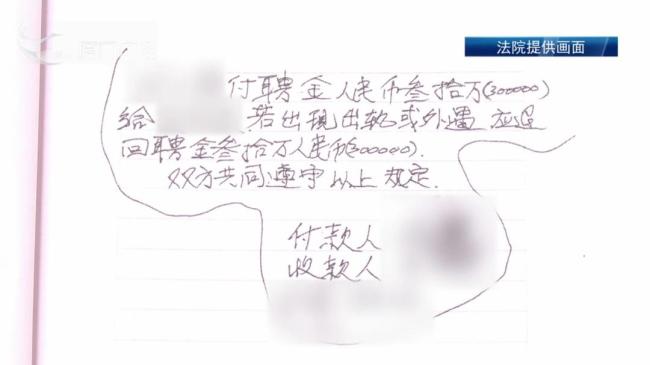 法院提供画面
付聘金人民币叁拾万(300000)
给 若出现出轨或外遇 应退
回聘金叁拾万人民币(300000).
双方共同遵守以上规定.
付款人
收款人